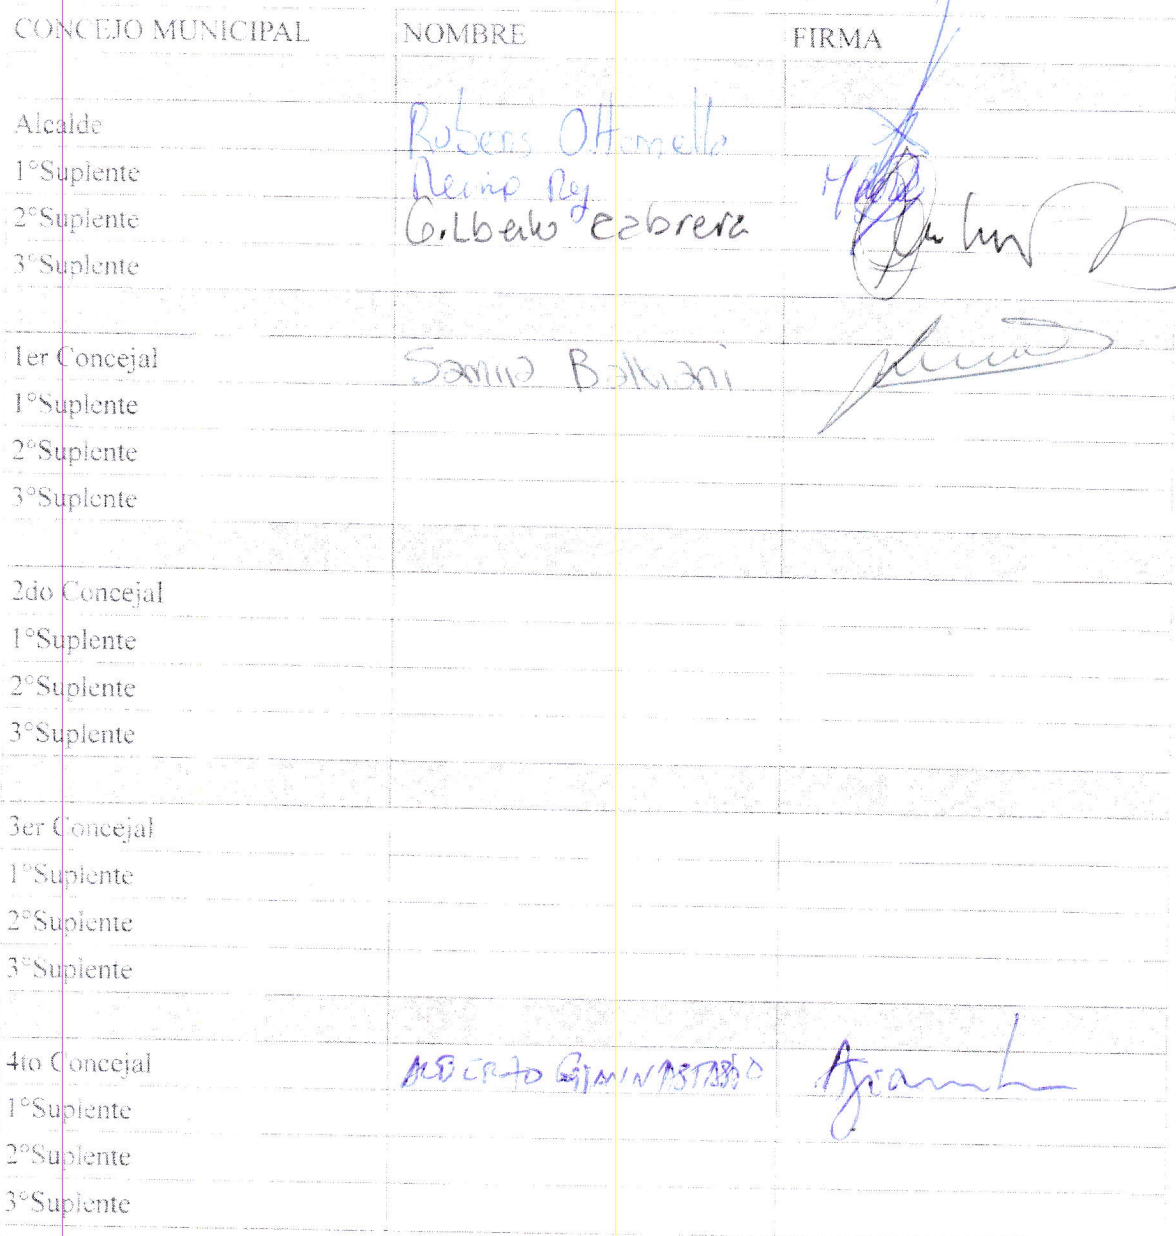 CONCEJO MUNICIPAL NOMBRE FIRMA
Alcalde Rubens Ottonello
1°Suplente Rey
2°Suplente Gilberto Cabrera
3°Suplente
1er Concejal Samira Balkiani
1°Suplente
2°Suplente
3°Suplente
2do Concejal
1°Suplente
2°Suplente
3°Suplente
3er Concejal
1°Suplente
2°Suplente
3°Suplente
4to Concejal ALBERTO GIANNASTASIO
1°Suplente
2°Suplente
3°Suplente